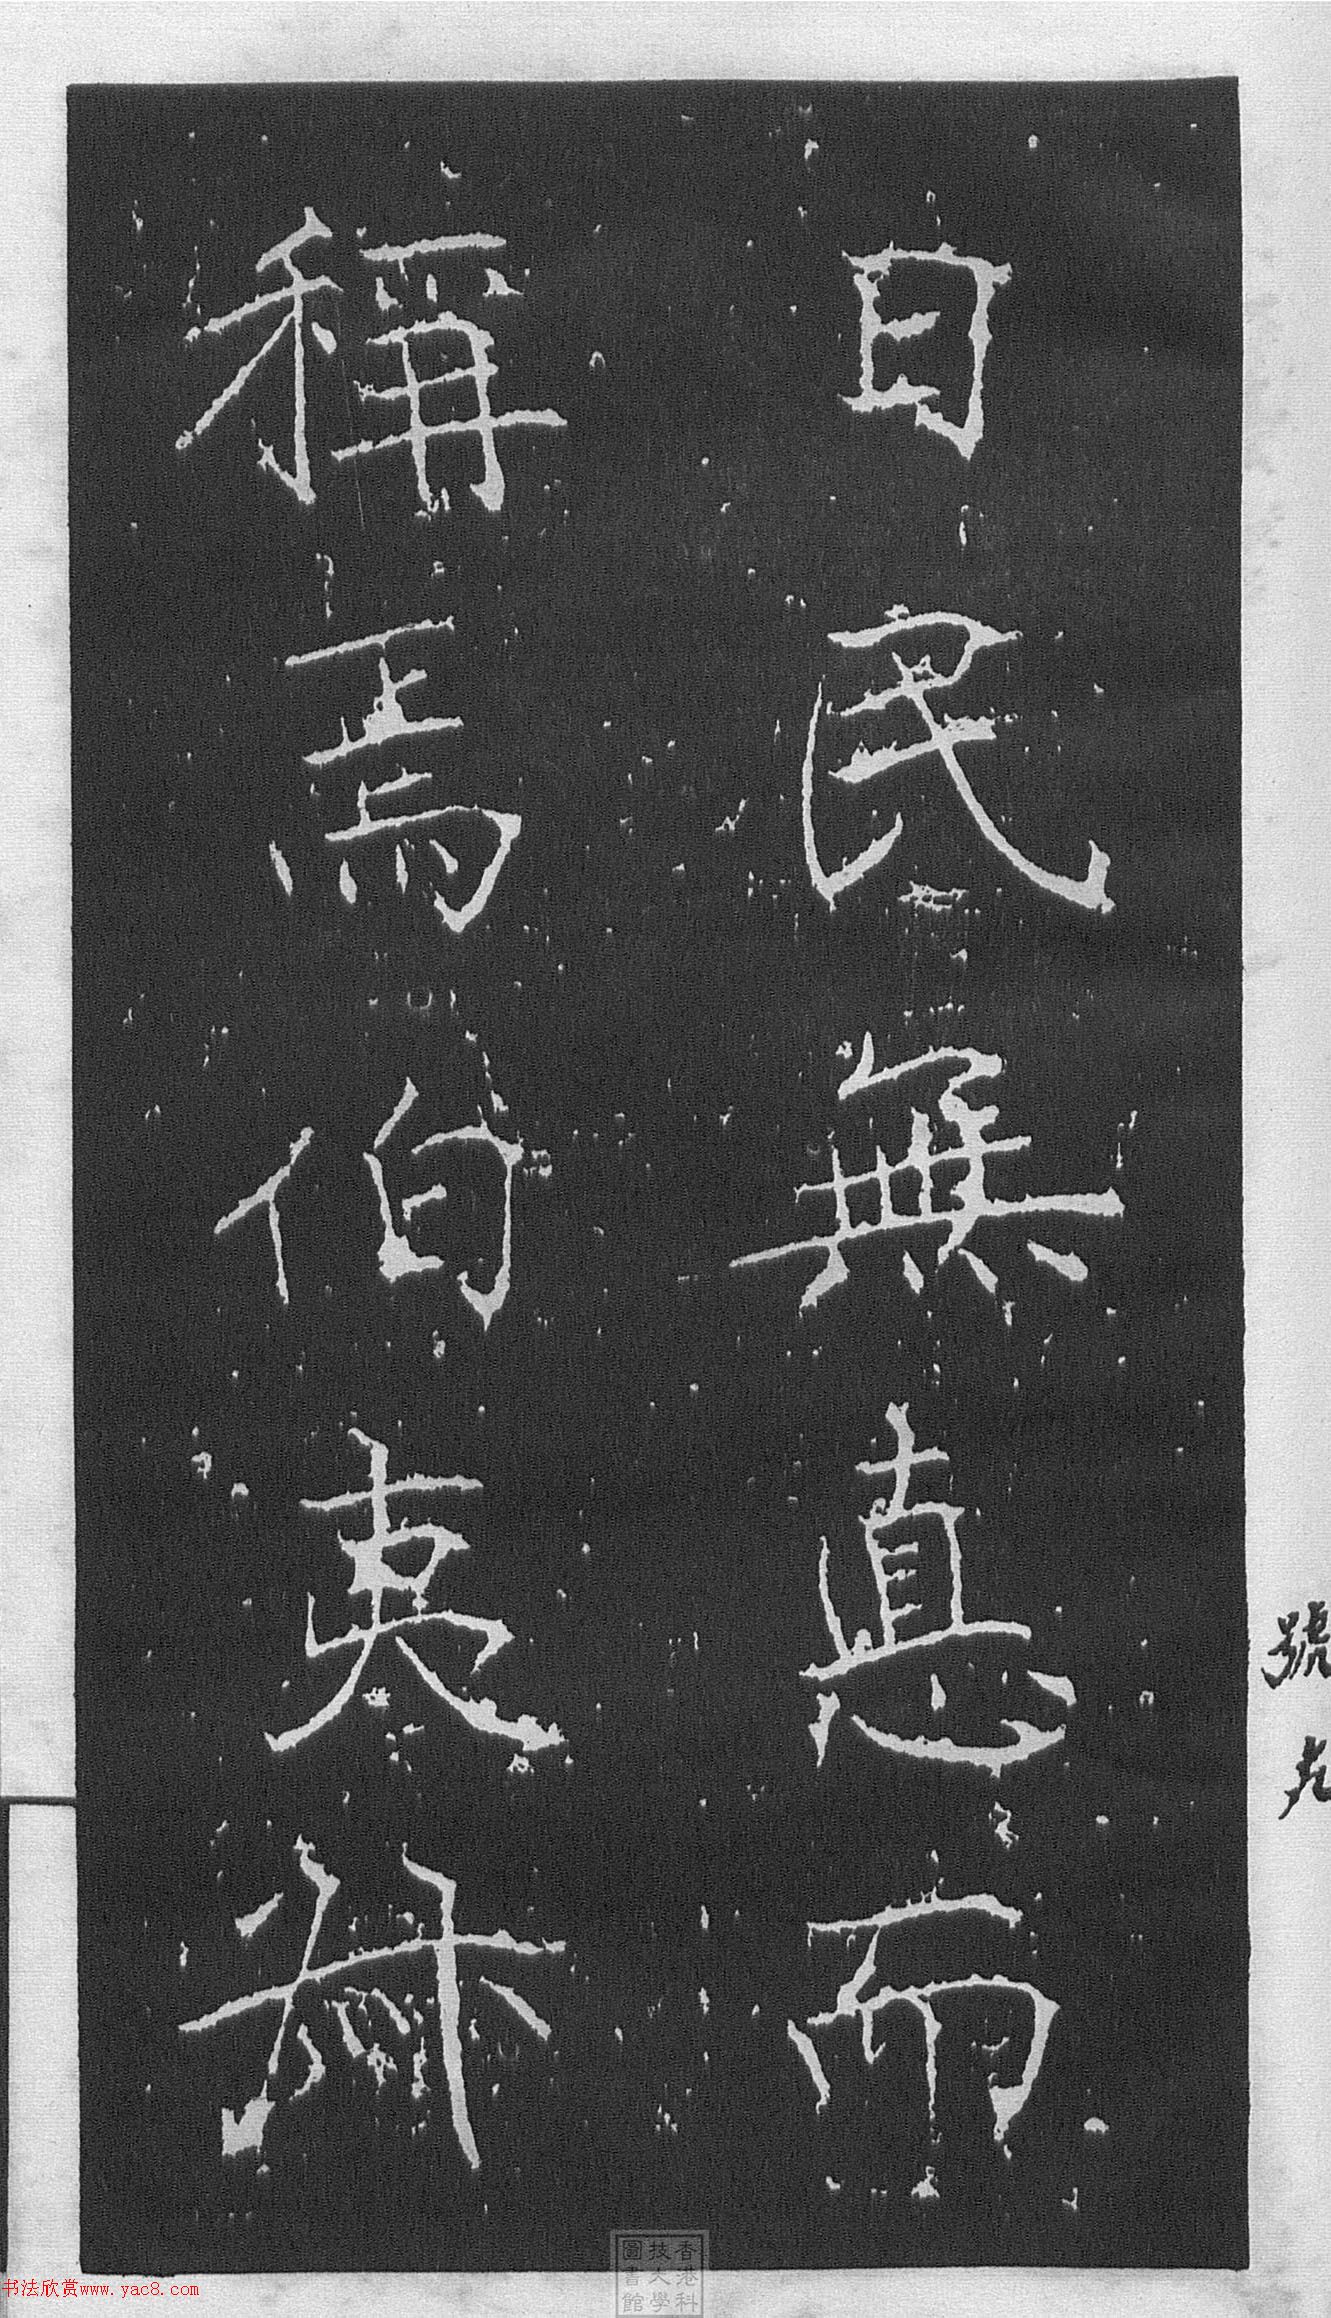 日民無悳而
稱焉伯夷
號
香港科
技大學
圖書館
书法欣赏www.yac8.com